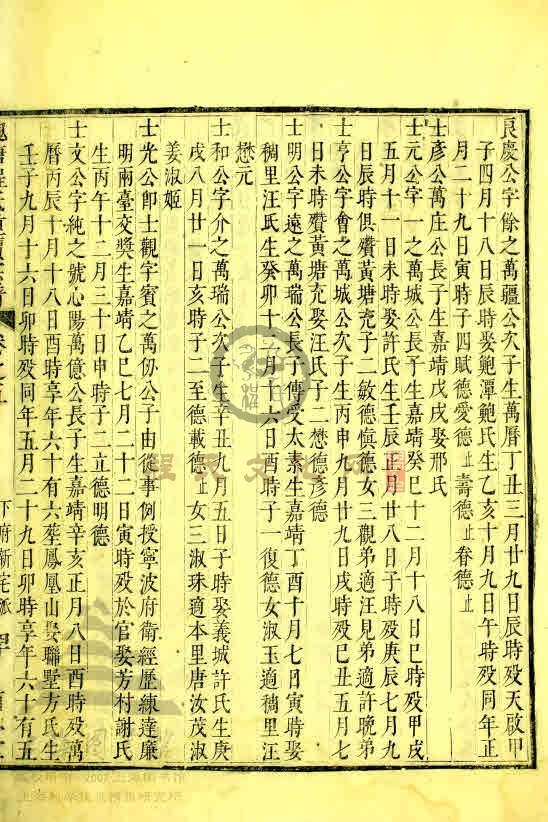 良慶公字餘之萬疆公次子生萬曆丁丑三月廿九日辰時殁天啟甲
子四月十八日辰時娶鮑潭鮑氏生乙亥十月九日午時殁同年正
月二十九日寅時子四賦德愛德止壽德止眷德止
士彥公萬庄公長子生嘉靖戊戌娶邢氏
士元公字一之萬城公長子生嘉靖癸巳十二月十八日巳時殁甲戌
五月十一日未時娶許氏生壬辰正月廿八日子時殁庚辰七月九
日辰時俱殯黃塘充子二敏德慎德女三觀弟適汪見弟適許晚弟
士亨公字會之萬城公次子生丙申九月廿九日戌時殁己丑五月七
日未時殯黃塘充娶汪氏子二懋德彥德
士明公字遠之萬瑞公長子傳受太素生嘉靖丁酉十月七日寅時娶
稠里汪氏生癸卯十一月十六日酉時子一復德女淑玉適稠里汪
懋元
士和公字介之萬瑞公次子生辛丑九月五日子時娶義城許氏生庚
戌八月廿一日亥時子二至德載德止女三淑珠適本里唐汝茂淑
姜淑姬
士光公即士觀字賓之萬仞公子由從事例授寧波府衛經歷練達廉
明兩臺交獎生嘉靖乙巳七月二十二日寅時殁於官娶芳村謝氏
生丙午十二月三十日申時子二立德明德
士文公字純之號心陽萬億公長子生嘉靖辛亥正月八日酉時殁萬
曆丙辰十月十八日酉時享年六十有六塟鳳凰山娶聯墅方氏生
壬子九月十六日卯時殁同年五月二十九日卯時享年六十有五
下府新宅派